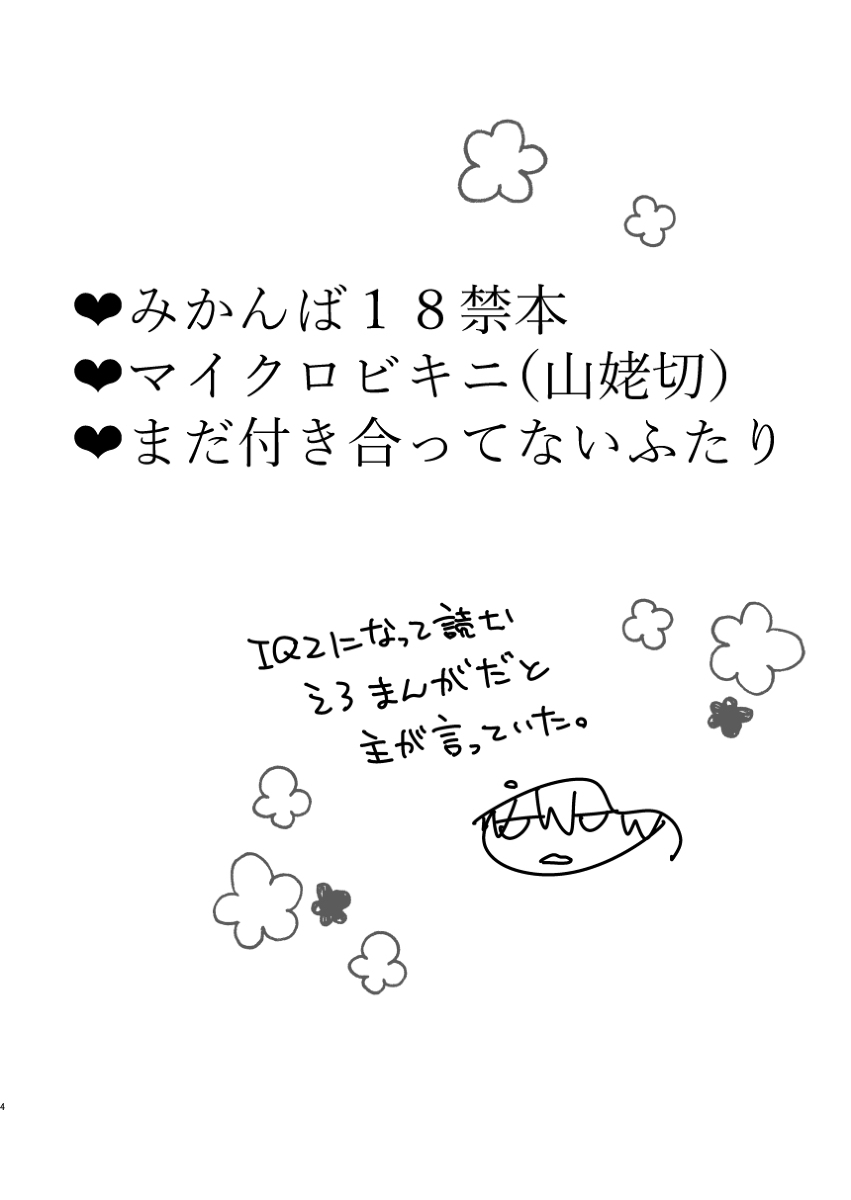 ❤みかんば１８禁本
❤マイクロビキニ(山姥切)
❤まだ付き合ってないふたり
IQ2になって読むい
えろまんがだと
主が言っていた。
4